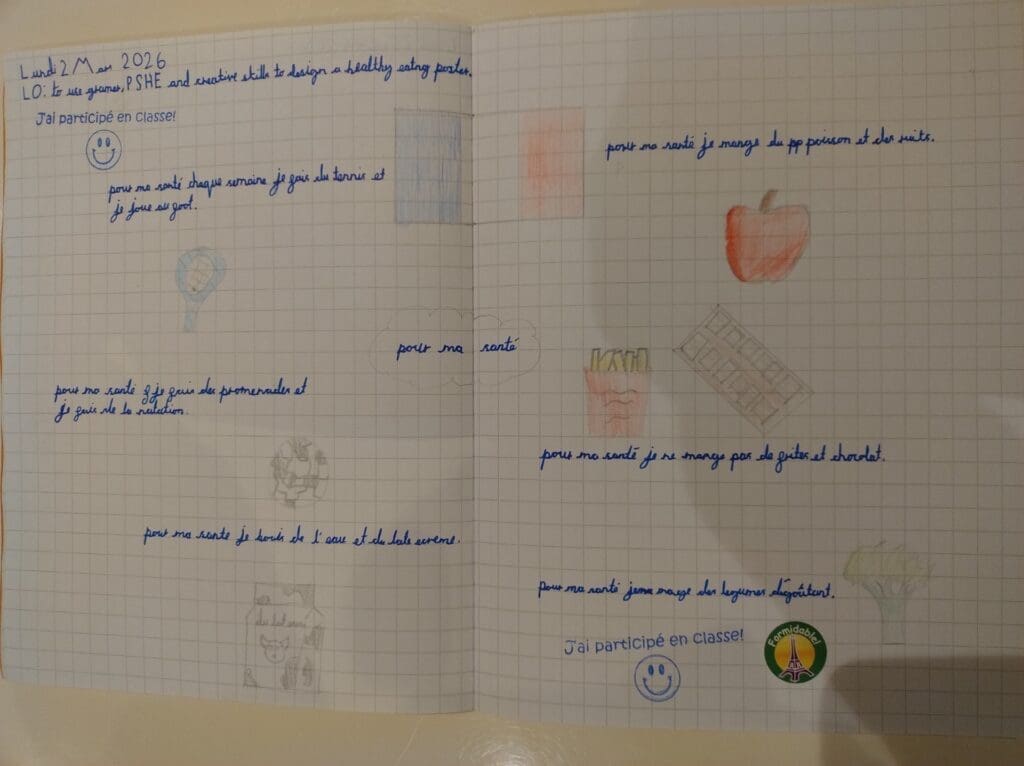 Lundi 2 Mars 2026
LO: to use grammer, PSHE and creative skills to design a healthy eating poster.
J'ai participé en classe!
pour ma santé chaque semaine je fais du tennis et
je joue au foot.
pour ma santé je mange du poisson et des fruits.
pour ma santé
pour ma santé je fais des promenades et
je fais de la natation.
pour ma santé je ne mange pas de frites et chocolat.
pour ma santé je bois de l'eau et du
du lait
pour ma santé mange des legumes dégoûtant.
J'ai participé en classe!
Formidable!